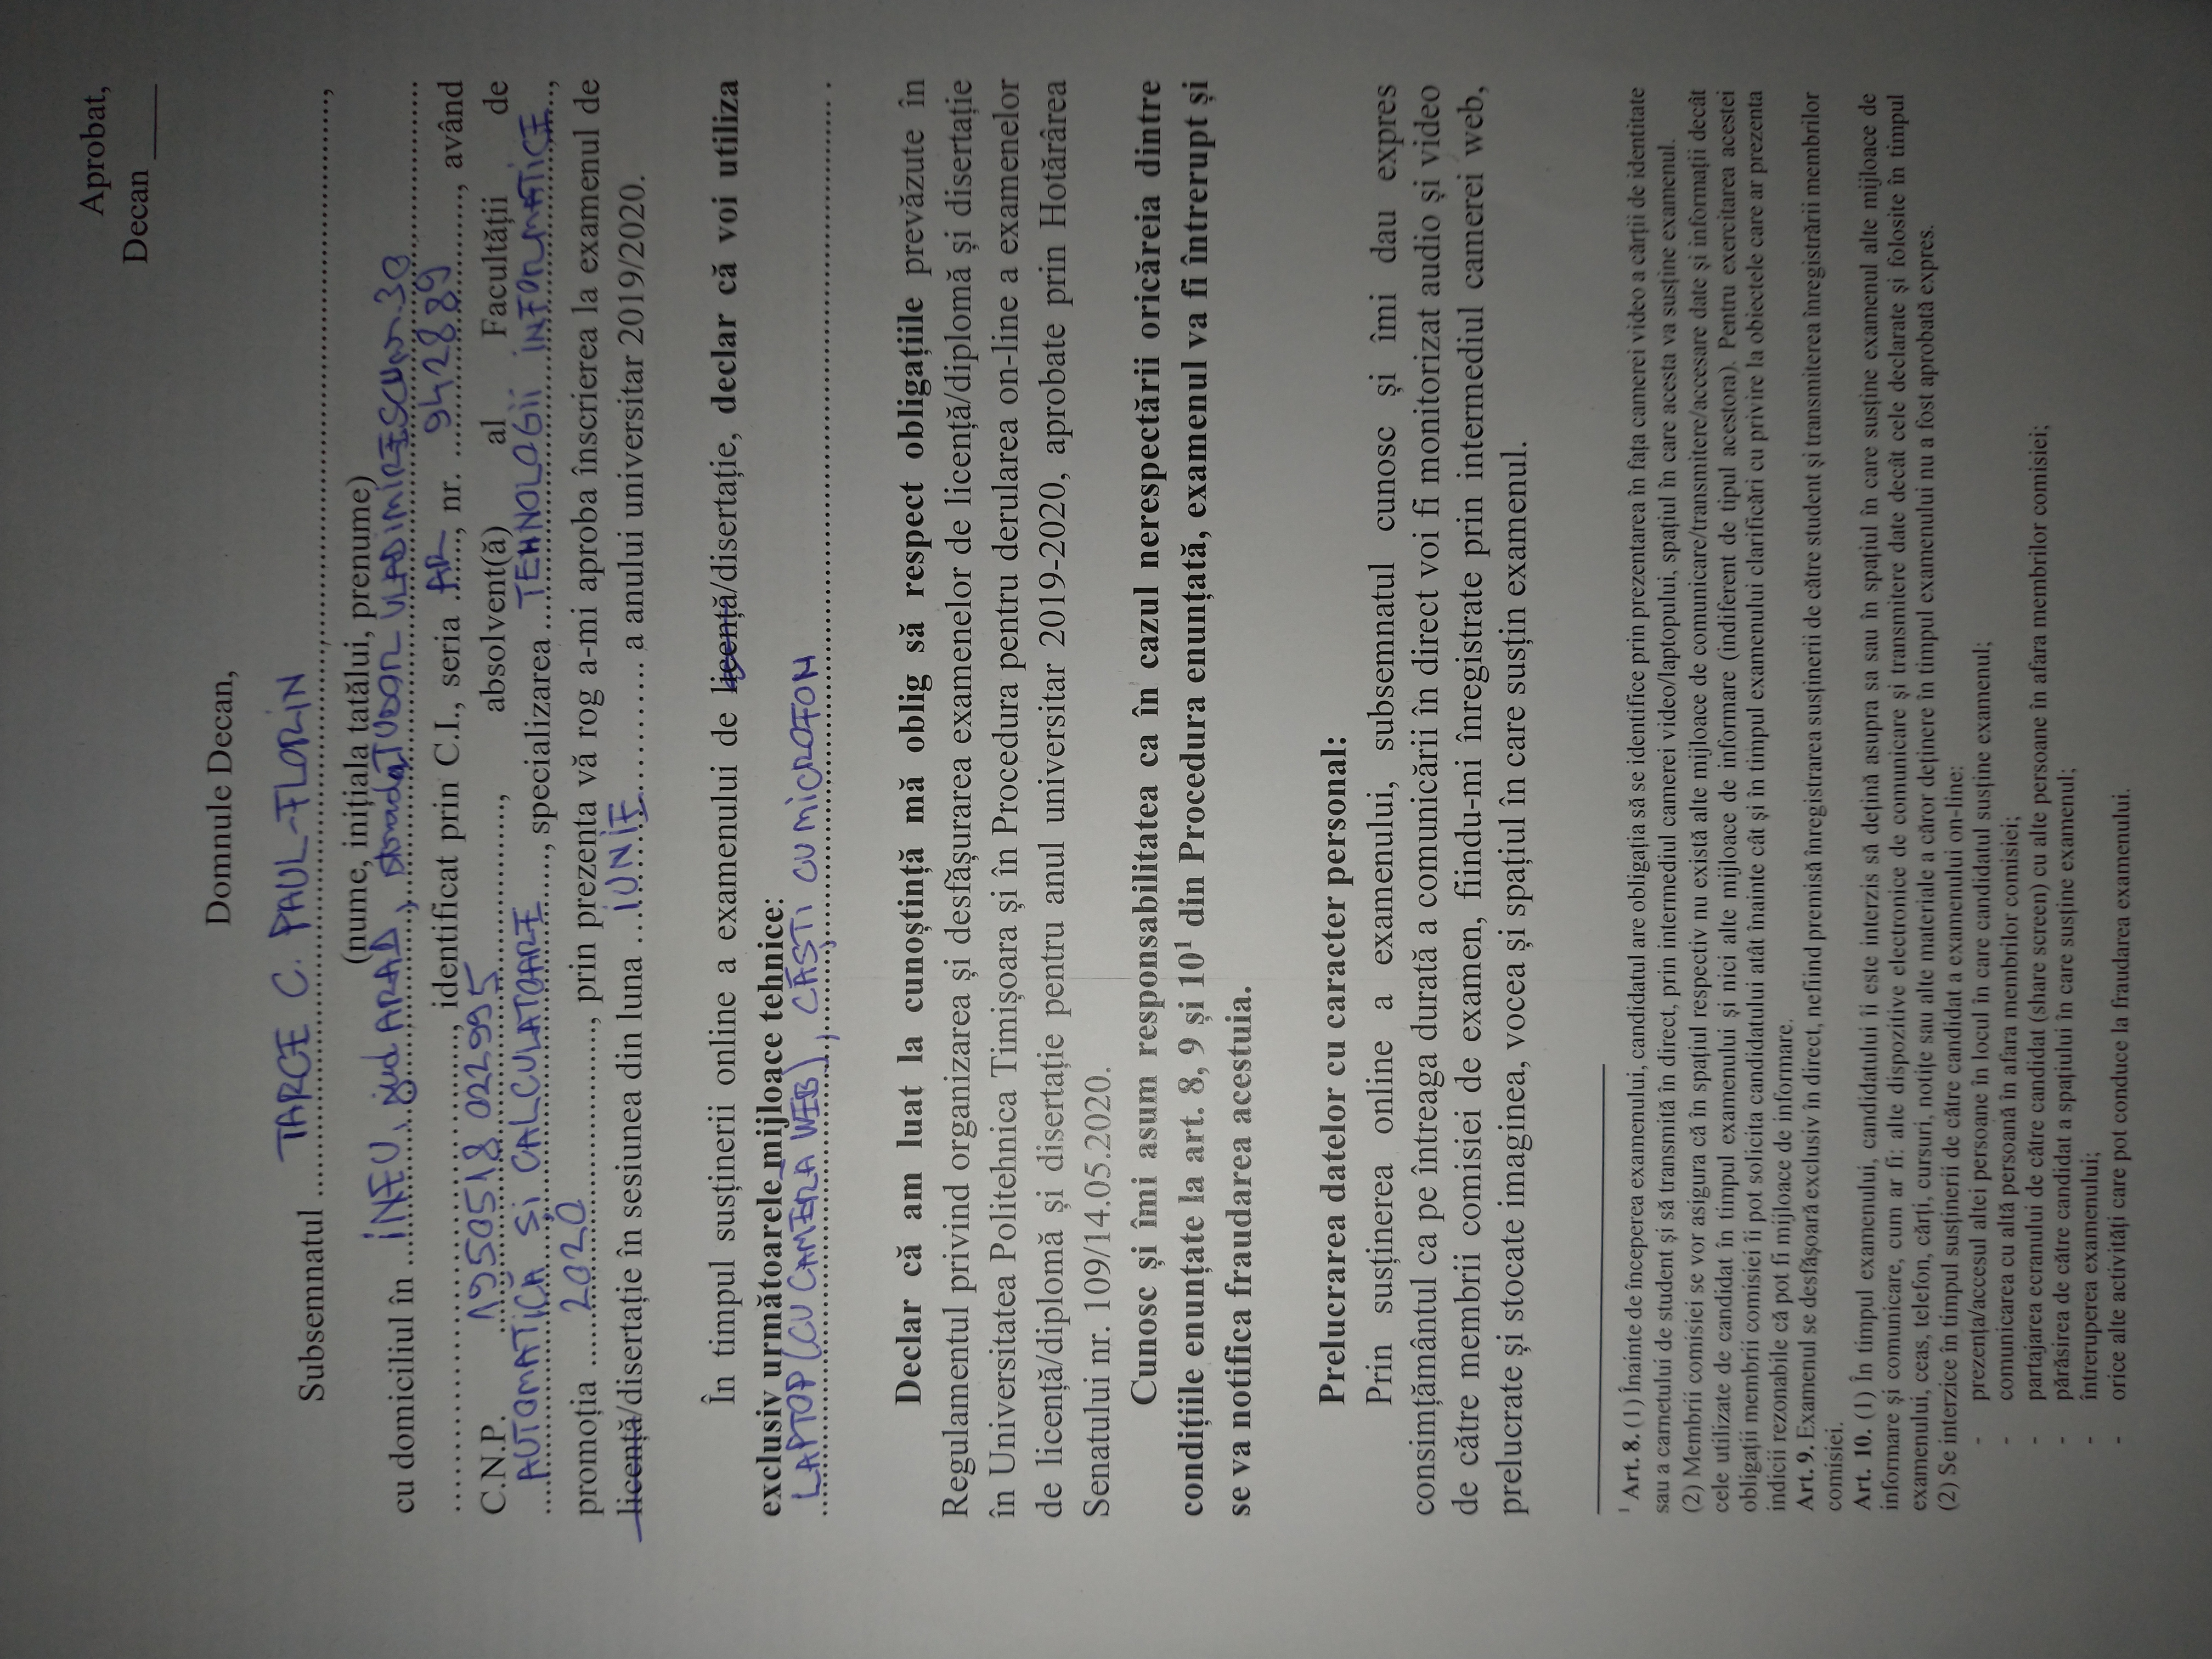 Aprobat,
Decan _____
Domnule Decan,
Subsemnatul TARCE C. PAUL-FLORIN,
(nume, inițiala tatălui, prenume)
cu domiciliul în INEU, jud ARAD, strada TUDOR VLADIMIRESCU nr. 30
, identificat prin C.I., seria AR, nr. 942889, având
C.N.P. 1950518022995, absolvent(ă) al Facultății de
AUTOMATICĂ ȘI CALCULATOARE, specializarea TEHNOLOGII INFORMATICE,
promoția 2020, prin prezenta vă rog a-mi aproba înscrierea la examenul de
licență/disertație în sesiunea din luna IUNIE a anului universitar 2019/2020.
În timpul susținerii online a examenului de licență/disertație, declar că voi utiliza
exclusiv următoarele mijloace tehnice:
LAPTOP (CU CAMERĂ WEB), CĂȘTI CU MICROFON.
Declar că am luat la cunoștință mă oblig să respect obligațiile prevăzute în
Regulamentul privind organizarea și desfășurarea examenelor de licență/diplomă și disertație
în Universitatea Politehnica Timișoara și în Procedura pentru derularea on-line a examenelor
de licență/diplomă și disertație pentru anul universitar 2019-2020, aprobate prin Hotărârea
Senatului nr. 109/14.05.2020.
Cunosc și îmi asum responsabilitatea ca în cazul nerespectării oricăreia dintre
condițiile enunțate la art. 8, 9 și 10¹ din Procedura enunțată, examenul va fi întrerupt și
se va notifica fraudarea acestuia.
Prelucrarea datelor cu caracter personal:
Prin susținerea online a examenului, subsemnatul cunosc și îmi dau expres
consimțământul ca pe întreaga durată a comunicării în direct voi fi monitorizat audio și video
de către membrii comisiei de examen, fiindu-mi înregistrate prin intermediul camerei web,
prelucrate și stocate imaginea, vocea și spațiul în care susțin examenul.
¹ Art. 8. (1) Înainte de începerea examenului, candidatul are obligația să se identifice prin prezentarea în fața camerei video a cărții de identitate
sau a carnetului de student și să transmită în direct, prin intermediul camerei video/laptopului, spațiul în care acesta va susține examenul.
(2) Membrii comisiei se vor asigura că în spațiul respectiv nu există alte mijloace de comunicare/transmitere/accesare date și informații decât
cele utilizate de candidat în timpul examenului și nici alte mijloace de informare (indiferent de tipul acestora). Pentru exercitarea acestei
obligații membrii comisiei îi pot solicita candidatului atât înainte cât și în timpul examenului clarificări cu privire la obiectele care ar prezenta
indicii rezonabile că pot fi mijloace de informare.
Art. 9. Examenul se desfășoară exclusiv în direct, nefiind premisă înregistrarea susținerii de către student și transmiterea înregistrării membrilor
comisiei.
Art. 10. (1) În timpul examenului, candidatului îi este interzis să dețină asupra sa sau în spațiul în care susține examenul alte mijloace de
informare și comunicare, cum ar fi: alte dispozitive electronice de comunicare și transmitere date decât cele declarate și folosite în timpul
examenului, ceas, telefon, cărți, cursuri, notițe sau alte materiale a căror deținere în timpul examenului nu a fost aprobată expres.
(2) Se interzice în timpul susținerii de către candidat a examenului on-line:
- prezența/accesul altei persoane în locul în care candidatul susține examenul;
- comunicarea cu altă persoană în afara membrilor comisiei;
- partajarea ecranului de către candidat (share screen) cu alte persoane în afara membrilor comisiei;
- părăsirea de către candidat a spațiului în care susține examenul;
- întreruperea examenului;
- orice alte activități care pot conduce la fraudarea examenului.